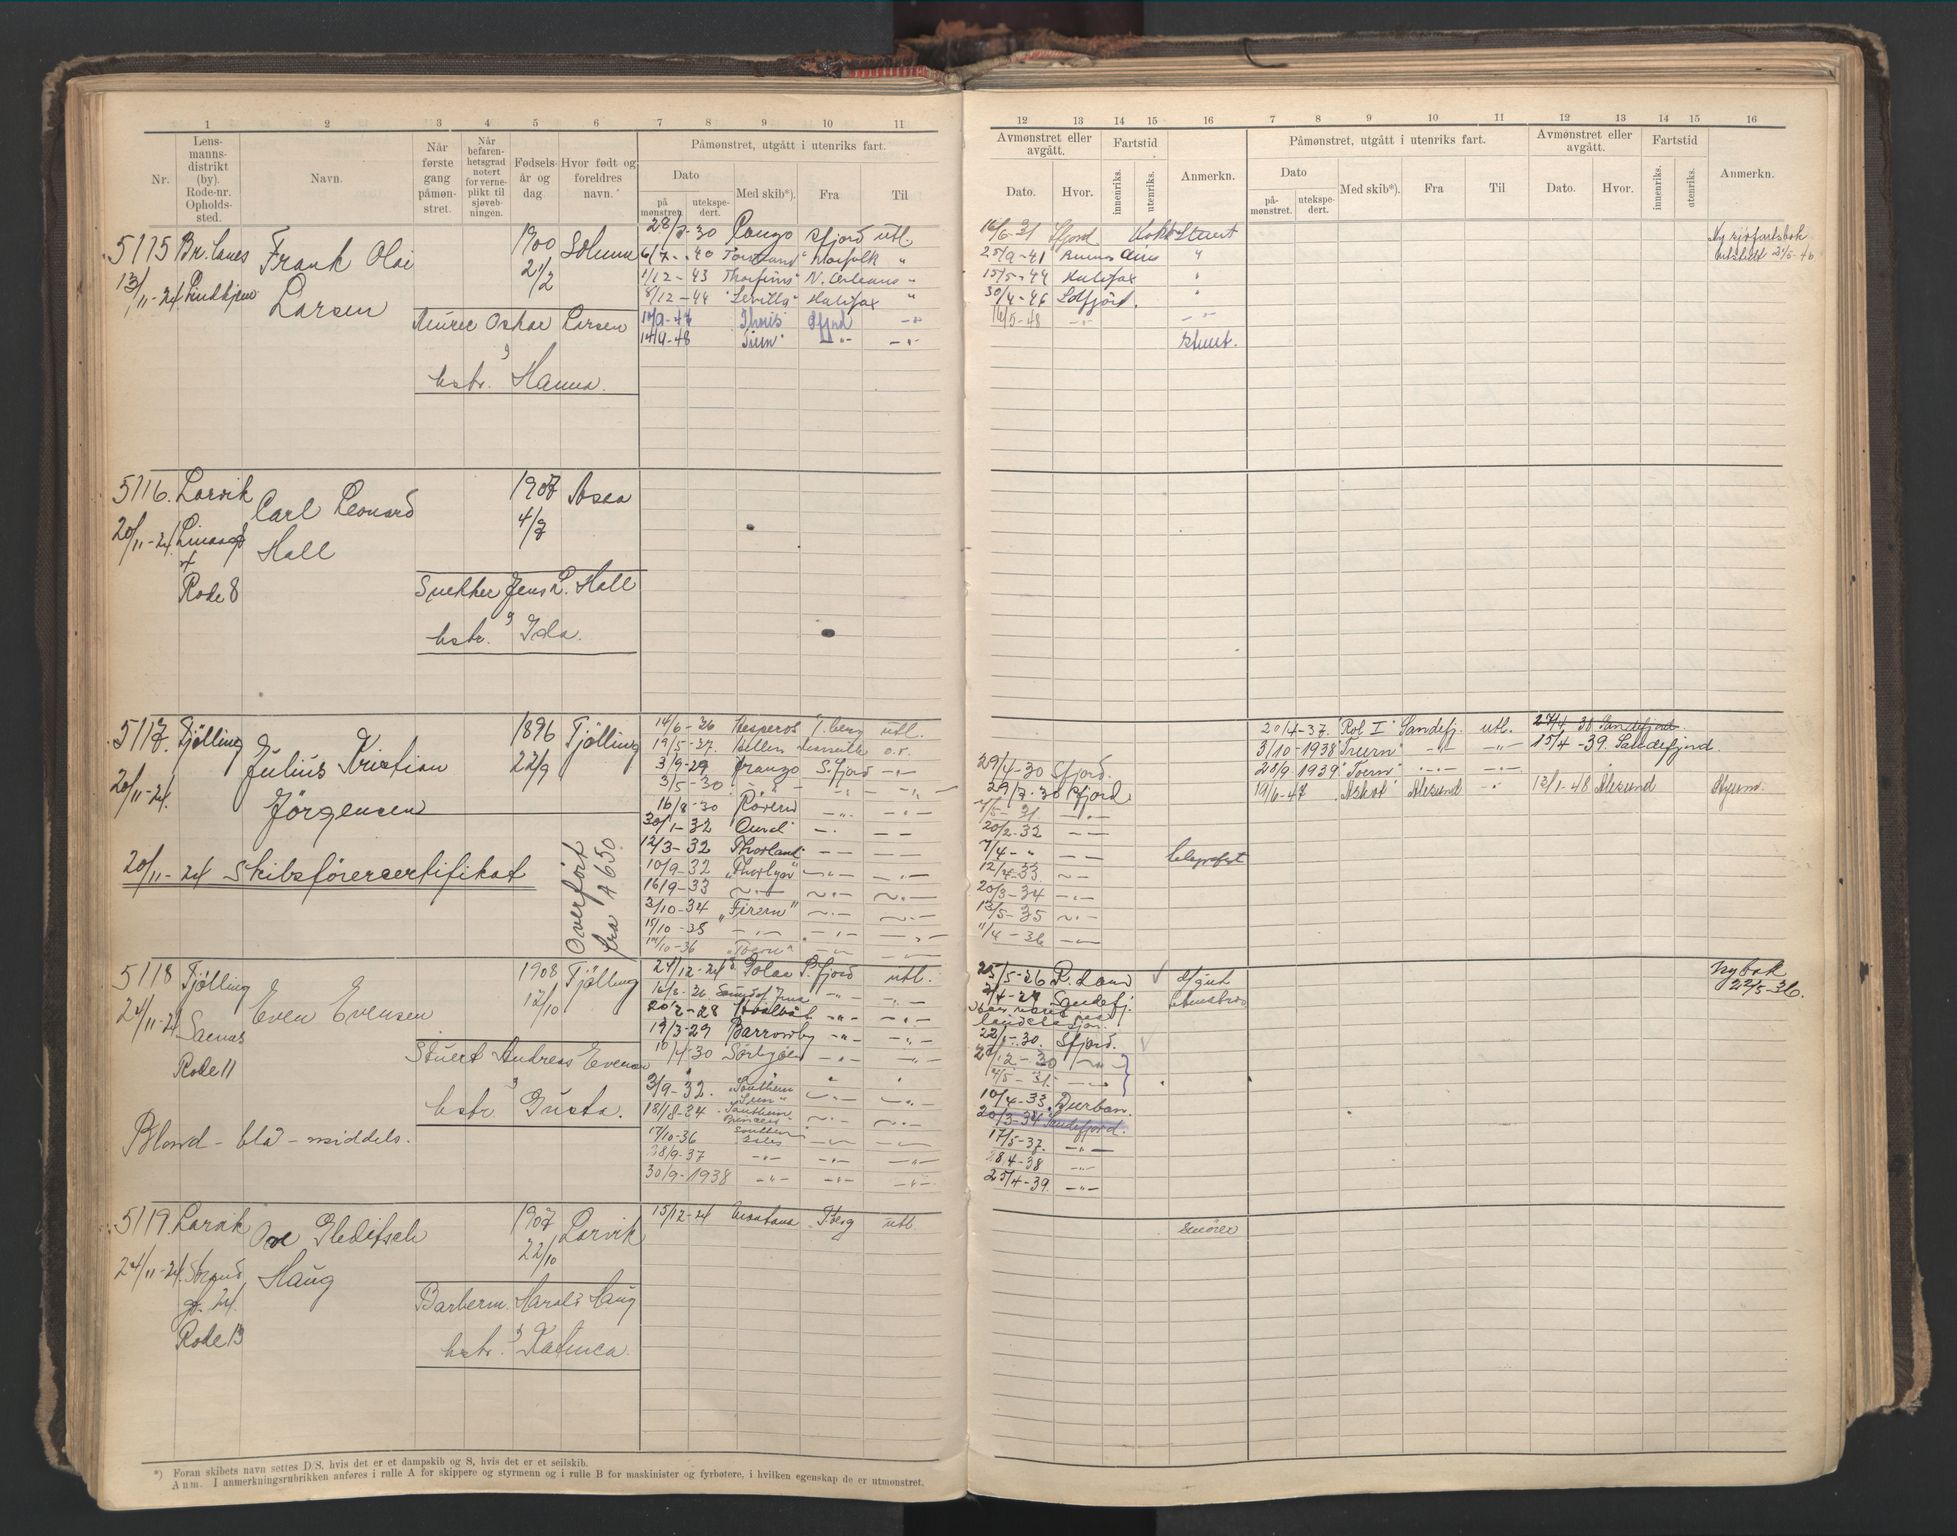 1 2 3 4 5 6 7 8 9 10 11
Nr.
Lens-
manns-
distrikt
(by).
Rode-nr.
Opholds-
sted.
Navn.
Når
første
gang
påmøn-
stret.
Når
befaren-
hetsgrad
notert
for verne-
plikt til
sjøveb-
ningen.
Fødsels-
år og
dag
Hvor født og
foreldres
navn.
Påmønstret, utgått i utenriks fart.
Dato
på-
mønstret.
utekspe-
dert.
Med skib*).
Fra
Til
5115 Br.lanes Frank Olai 1900 Solum
13/11-24 Lindhjem Larsen 21/2
Murer Oskar Larsen
hstr. Hanna.
28/7-30 Congo Sfjord utl.
6/7-40 Torstrand Norfolk "
1/12-43 Thorfinn N. Orleans "
8/12-44 Sevilla Halifax "
Thoris Sfjord -"-
14/9-48 -"- -"-
5116. Larvik Carl Leonard 1907 Asen
20/11-24 Hall 4/7
Rode 8
Snekker Jens L. Hall
hstr. Ida.
5117. Tjølling Julius Kristian 1896 Tjølling
20/11-24. Jørgensen 22/9
20/11-24 Skibsførercertifikat
Overført
fra A 650.
14/6-26 Hesperos T.berg utl.
19/5-27.
3/9-29 Orango S.fjord -"-
3/5-30 -"- -"- -"-
16/8-30 Rovern -"- -"-
30/1-32 -"- -"-
12/3-32 Thorland -"- -"-
10/9-32 "Thorbjør -"- -"-
16/9-33 -"- -"- -"-
3/10-34 "Firern" -"- -"-
15/10-35 -"- -"- -"-
14/10-36 "Toern" -"- -"-
5118 Tjølling Even Evensen 1908 Tjølling
24/11-24 12/10
Rode 11
Stuert Andreas Evensen
hstr. Gusta.
Blond - blå - middels.
24/12-24 Solas S.fjord utl.
-"- -"-
20/2-28 -"- -"-
19/3-29 Barrowby -"- -"-
10/4-30 Sørbyøen -"- -"-
3/9-32. "Southern
Sun"
18/8-34 Southern
Princess
17/10-36 Southern
28/9-37 -"- -"- -"-
30/9-1938 -"- -"- -"-
5119 Larvik Ove Gleditsch 1907 Larvik
24/11-24. Strand Haug 22/10
gt. 24.
Rode 13
Barberm. Harald Haug
hstr. Katinca.
15/12-24 Montana Tberg utl.
*) Foran skibets navn settes D/S, hvis det er et dampskib og S, hvis det er et seilskib.
Anm. I anmerkningsrubrikken anføres i rulle A for skippere og styrmenn og i rulle B for maskinister og fyrbøtere, i hvilken egenskap de er utmønstret.
12 13 14 15 16 7 8 9 10 11 12 13 14 15 16
Avmønstret eller
avgått.
Dato.
Hvor.
Fartstid
innenriks.
utenriks.
Anmerkn.
Påmønstret, utgått i utenriks fart.
Dato
på-
mønstret.
utekspe-
dert.
Med skib*).
Fra
Til
Avmønstret eller
avgått.
Dato.
Hvor.
Fartstid
innenriks.
utenriks.
Anmerkn.
16/6-31 Sfjord Kokk Stuert
25/9-41 Buenos Aires "
15/5-44 Halifax "
30/4-46 Sdfjord. "
16/5-48 -"- -"-
stuert.
Ny sjøfartsbok
utstedt 21/5-46
29/4-30 Sfjord.
29/7-30 Sfjord
7/5-31. -"-
20/2-32 -"-
7/4-" -"- telegrafist
12/4-33 -"-
20/3-34 -"-
13/5-35 -"-
11/4-36 -"-
20/4-37. "Pol I" Sandefj. utl. 27/4.38 Sandefjord.
3/10-1938 "Truern" -"- -"- 15/4-39. Sandefjord.
28/9 1939 "Toern" -"- -"-
19/6-47 Askot Ålesund -"- 13/1-48 Ålesund Styrm.
25/5-26
3/4-27 Sandefj.
22/1-30. Sfjord.
-12-30 -"-
4/5-31. -"-
10/4-33. Durban.
20/3-34 Sandefjord.
17/5-37. -"-
28.4-38 -"-
25/4-39. -"-
Ny bok
22/5-36.
smører